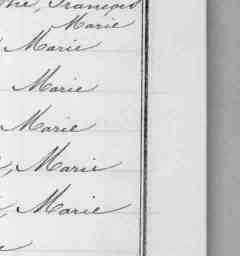 François
Marie
, Marie
Marie
Marie
, Marie
, Marie